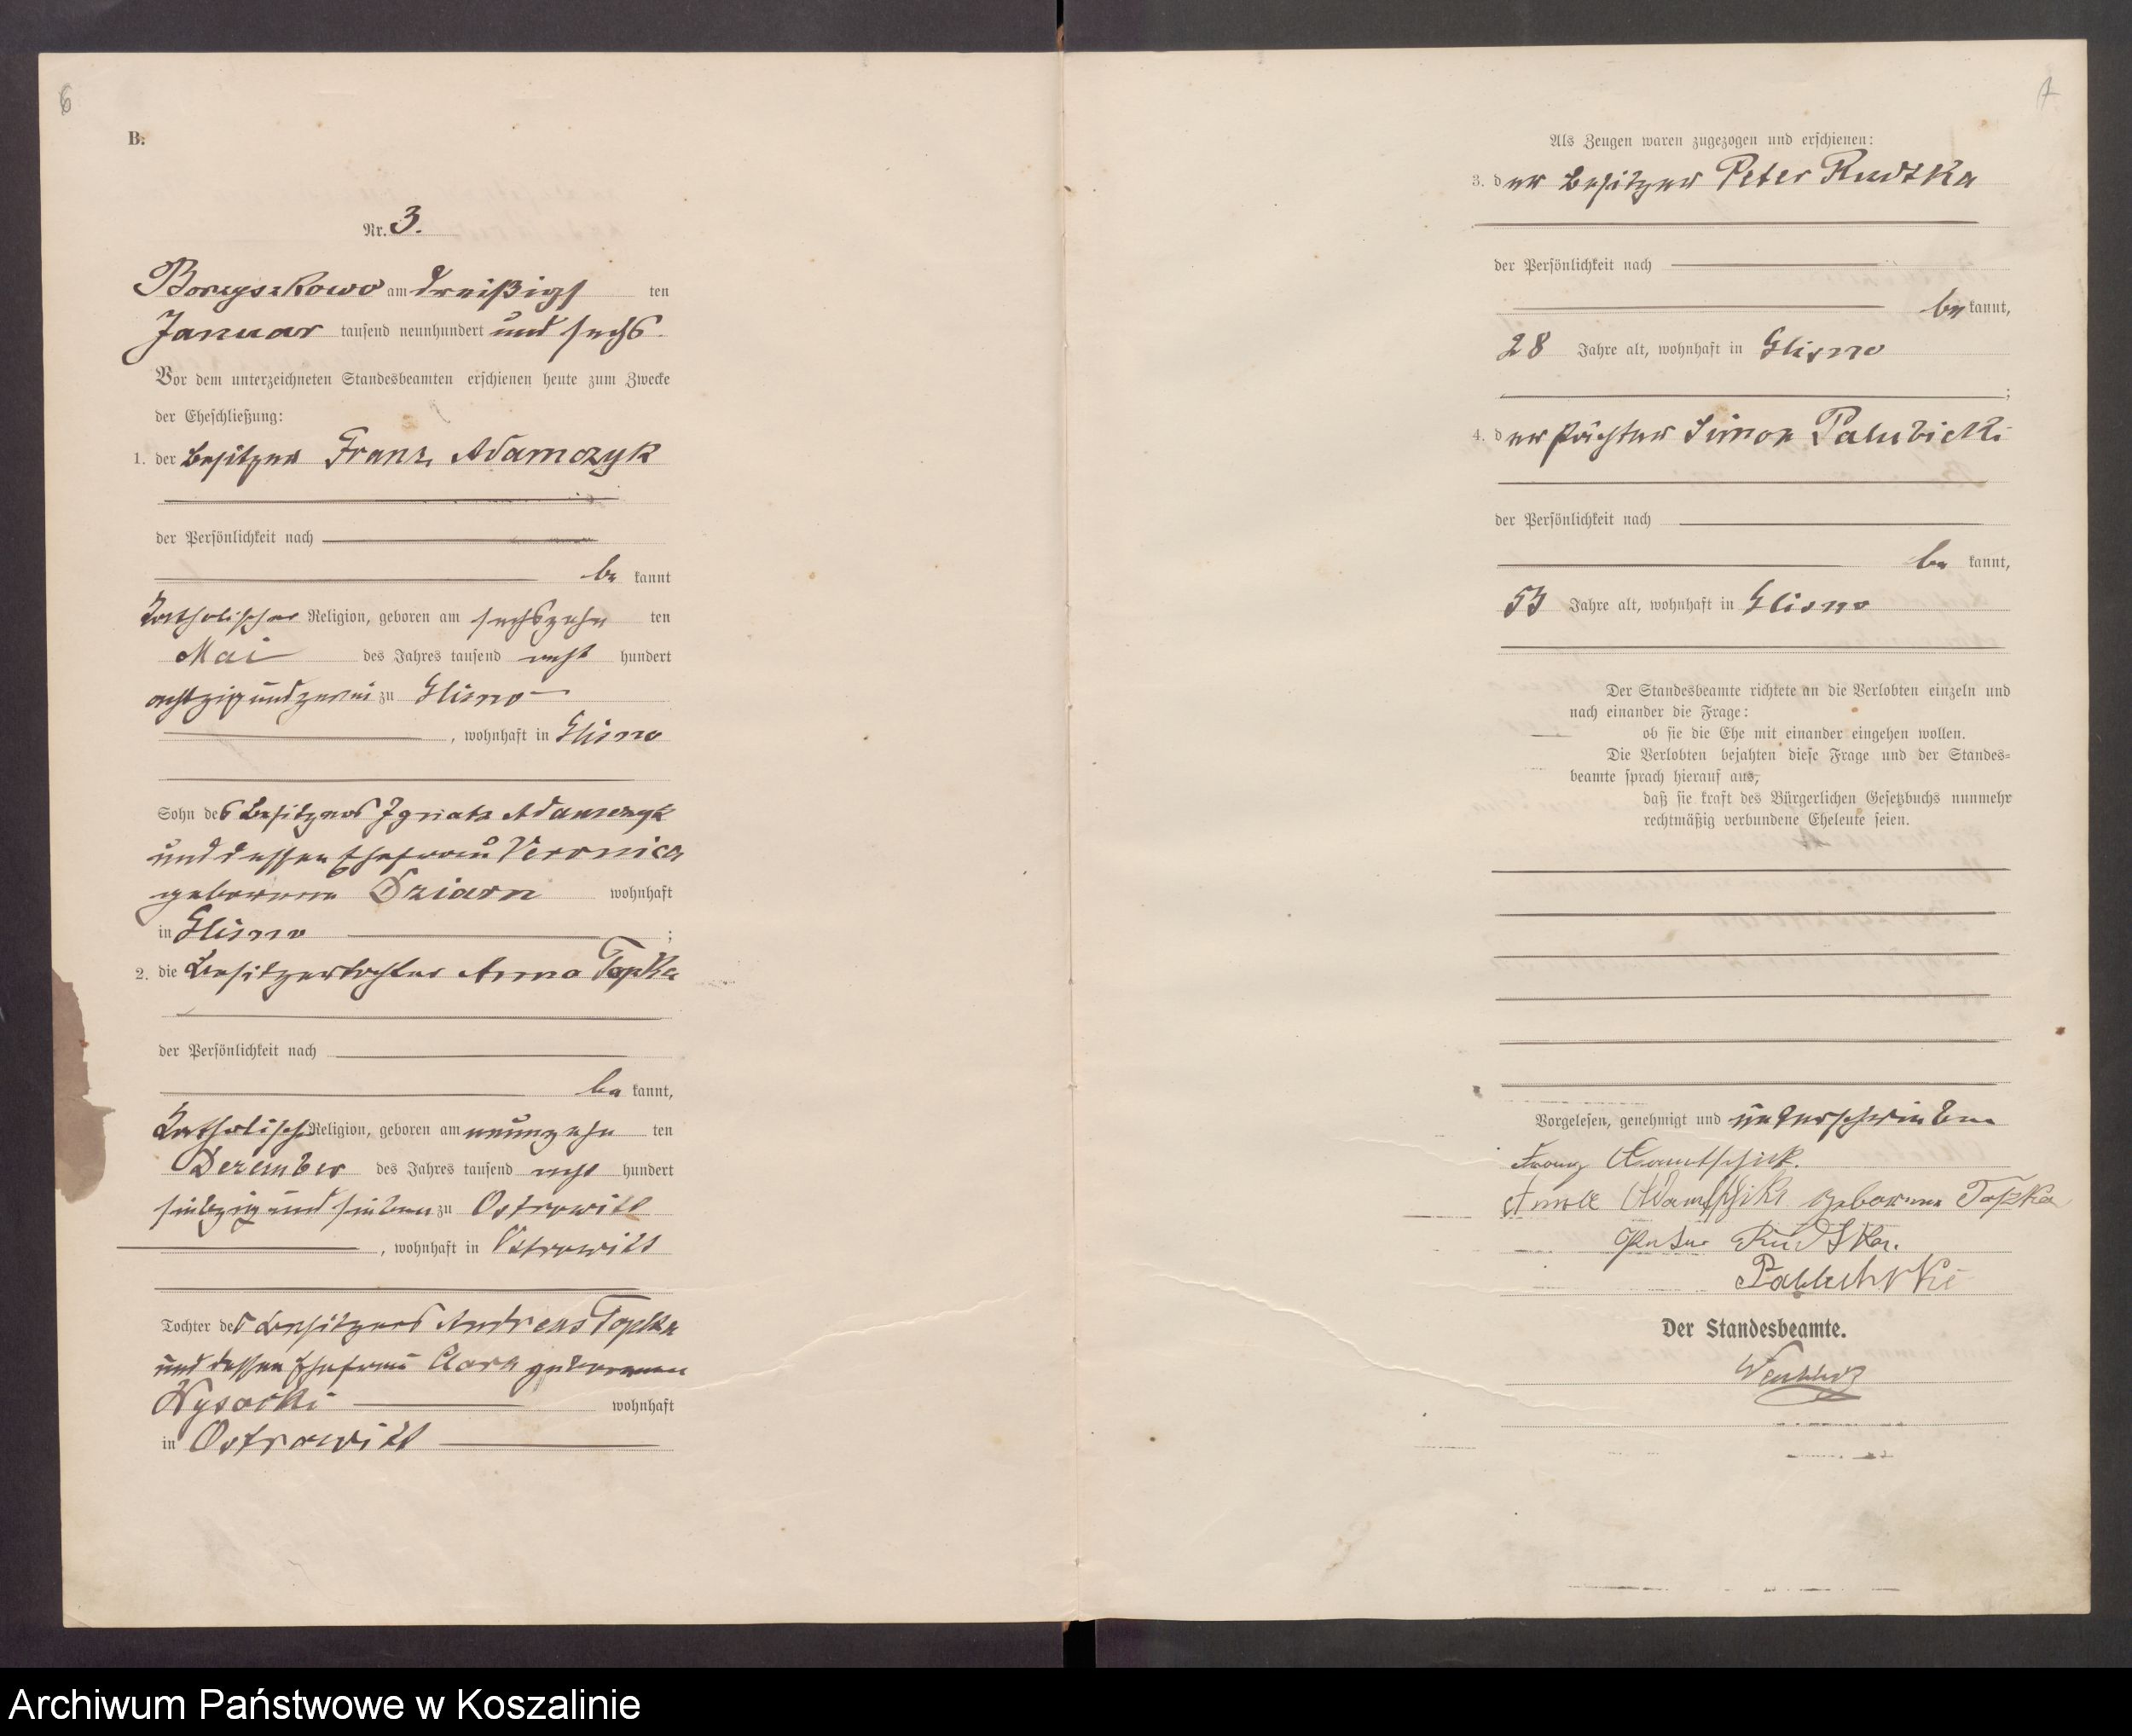 6
B.
Nr. 3.
Borzyszkowo am dreißigsten
Januar tausend neunhundert und sechs.
Vor dem unterzeichneten Standesbeamten erschienen heute zum Zwecke
der Eheschließung:
1. der Besitzer Franz Adamczyk
der Persönlichkeit nach
be kannt
Katholischer Religion, geboren am sechszehn ten
Mai des Jahres tausend acht hundert
achtzig und zwei zu Glisno
, wohnhaft in Glisno
Sohn des Besitzers Ignatz Adamczyk
und dessen Ehefrau Veronica
geborenen Dziarn wohnhaft
in Glisno ;
2. die Besitzertochter Anna Topka
der Persönlichkeit nach
be kannt,
Katholisch Religion, geboren am neunzehn ten
Dezember des Jahres tausend acht hundert
siebzig und sieben zu Ostrowitt
, wohnhaft in Ostrowitt
Tochter des Besitzers Andreas Topka
und dessen Ehefrau Clara geborenen
Wysocki wohnhaft
in Ostrowitt
Als Zeugen waren zugezogen und erschienen:
3. der Besitzer Peter Rudtka
der Persönlichkeit nach
be kannt,
28 Jahre alt, wohnhaft in Glisno
;
4. der Pächter Simon Palubicki
der Persönlichkeit nach
be kannt,
53 Jahre alt, wohnhaft in Glisno
Der Standesbeamte richtete an die Verlobten einzeln und
nach einander die Frage:
ob sie die Ehe mit einander eingehen wollen.
Die Verlobten bejahten diese Frage und der Standes=
beamte sprach hierauf aus,
daß sie kraft des Bürgerlichen Gesetzbuchs nunmehr
rechtmäßig verbundene Eheleute seien.
Vorgelesen, genehmigt und unterschrieben
Franz Adamtschick.
Anna geborene Topka
Peter Rudtka.
Der Standesbeamte.
Archiwum Państwowe w Koszalinie